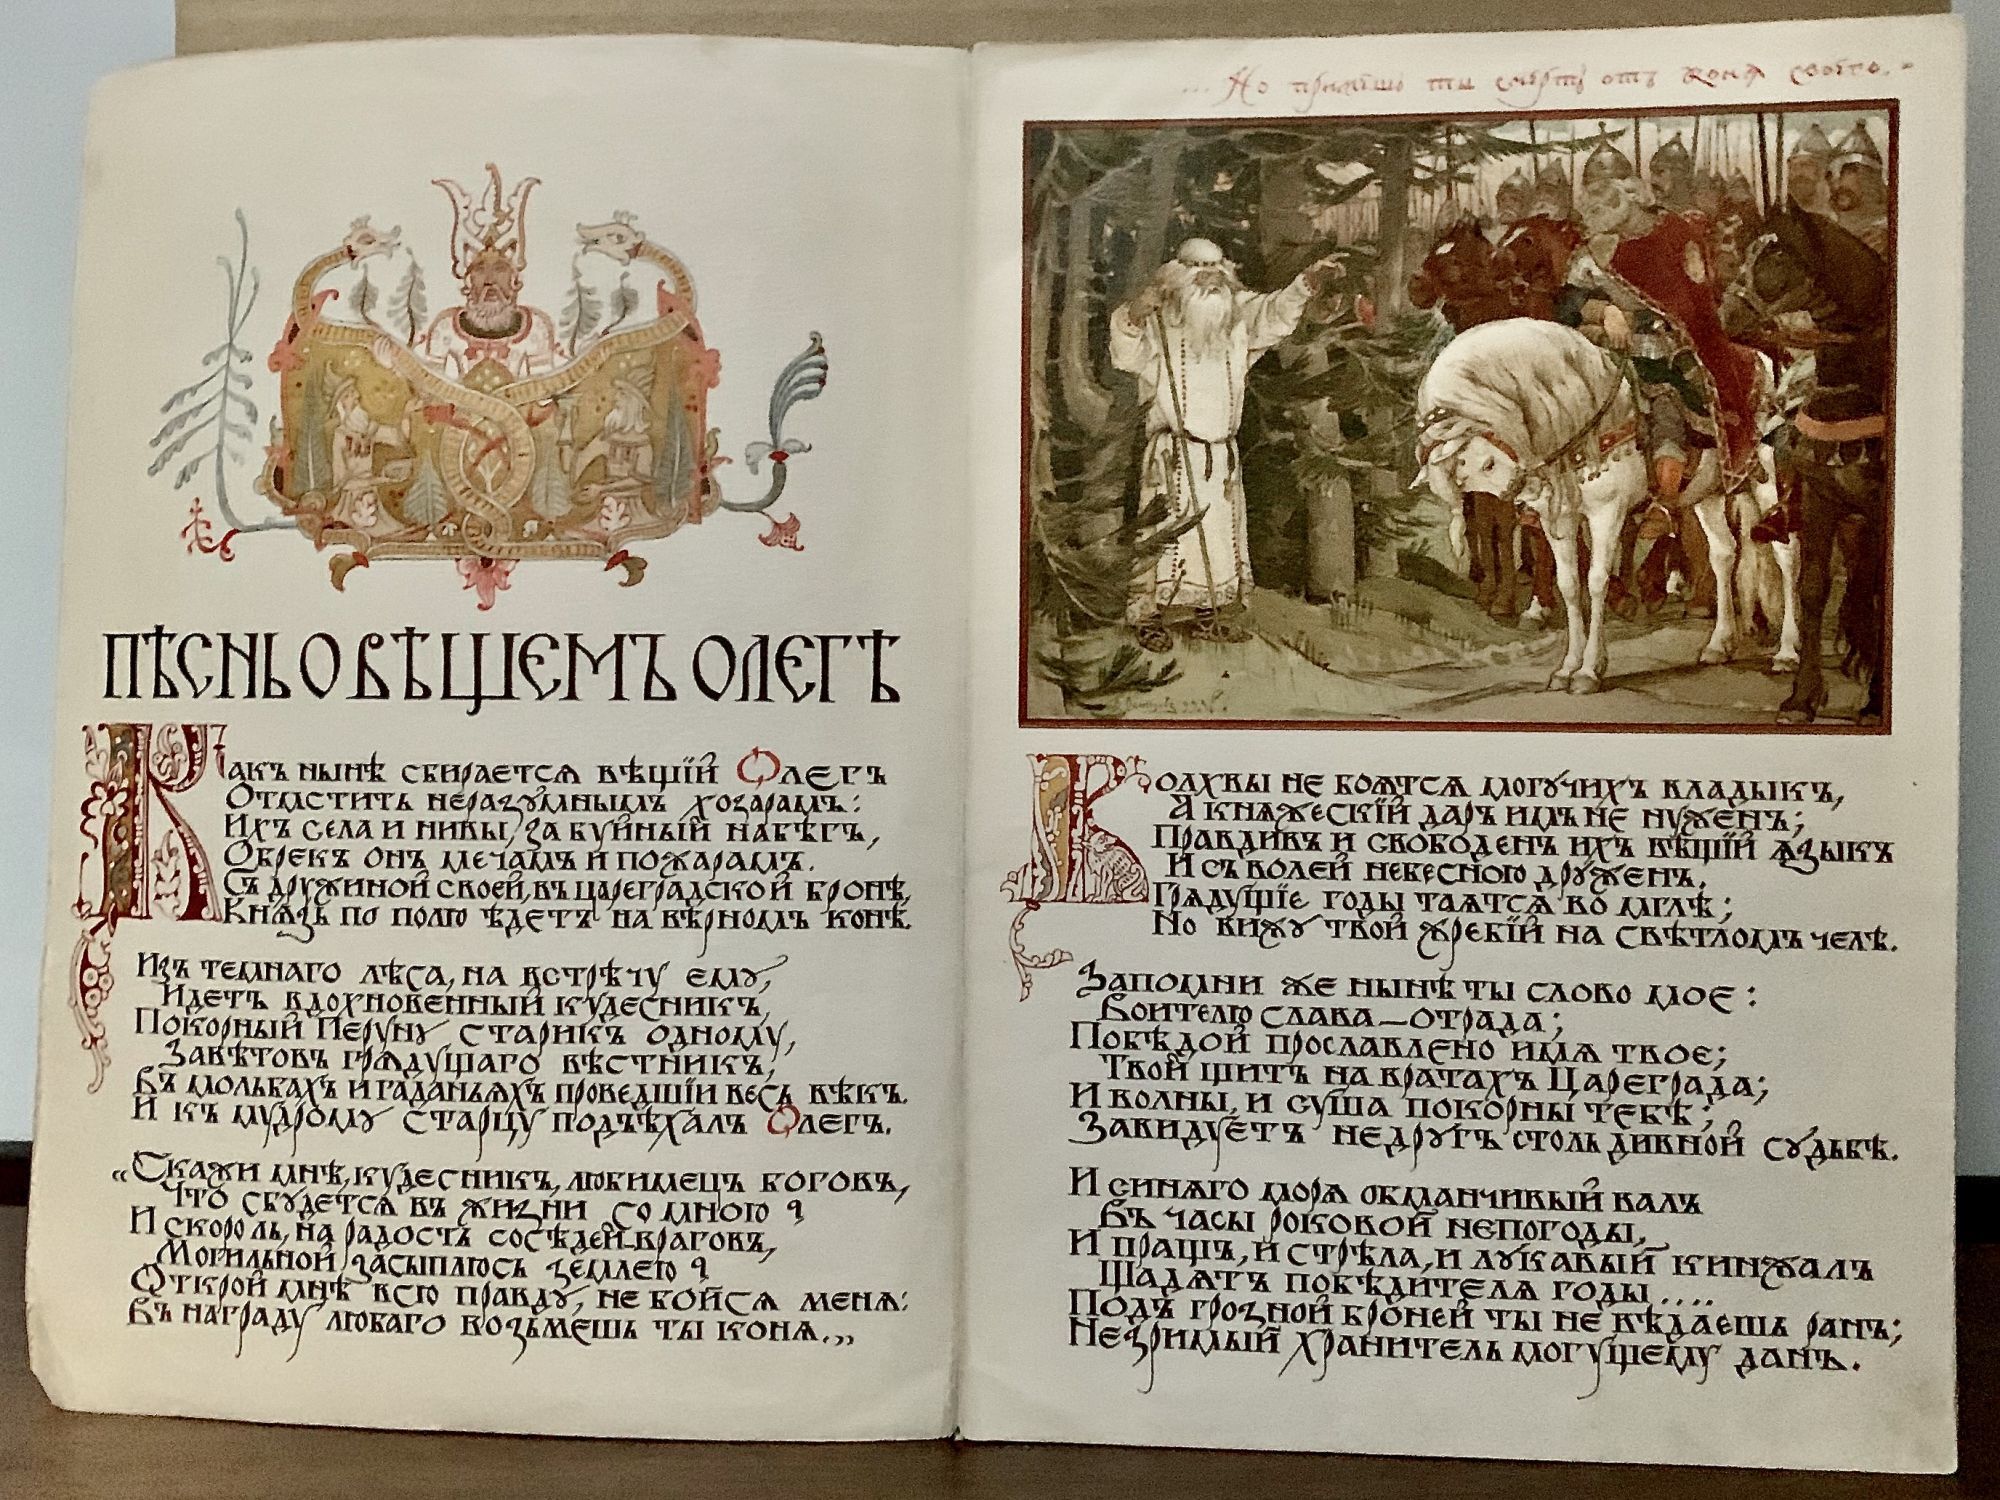 ПѢСНЬ О ВѢЩЕМЪ ОЛЕГѢ
Какъ нынѣ сбирается вѣщій Олегъ
Отмстить неразумнымъ хозарамъ:
Ихъ села и нивы, за буйный набѣгъ,
Обрекъ онъ мечамъ и пожарамъ.
Съ дружиной своей, въ цареградской бронѣ,
Князь по полю ѣдетъ на вѣрномъ конѣ.
Изъ темнаго лѣса, на встрѣчу ему,
Идетъ вдохновенный кудесникъ,
Покорный Перуну старикъ одному,
Завѣтовъ грядущаго вѣстникъ,
Въ мольбахъ и гаданьяхъ проведшій весь вѣкъ.
И къ мудрому старцу подъѣхалъ Олегъ.
„Скажи мнѣ, кудесникъ, любимецъ боговъ,
Что сбудется въ жизни со мною?
И скоро ль, на радость сосѣдей-враговъ,
Могильной засыплюсь землею?
Открой мнѣ всю правду, не бойся меня:
Въ награду любаго возьмешь ты коня.„
...Но примешь ты смерть отъ коня своего.
Волхвы не боятся могучихъ владыкъ,
А княжескій даръ имъ не нуженъ;
Правдивъ и свободенъ ихъ вѣщій языкъ
И съ волей небесною друженъ.
Грядущіе годы таятся во мглѣ;
Но вижу твой жребій на свѣтломъ челѣ.
Запомни же нынѣ ты слово мое:
Воителю слава—отрада;
Побѣдой прославлено имя твое;
Твой щитъ на вратахъ Цареграда;
И волны, и суша покорны тебѣ;
Завидуетъ недругъ столь дивной судьбѣ.
И синяго моря обманчивый валъ
Въ часы роковой непогоды,
И пращъ, и стрѣла, и лукавый кинжалъ
Щадятъ побѣдителя годы....
Подъ грозной броней ты не вѣдаешь ранъ;
Незримый хранитель могущему данъ.